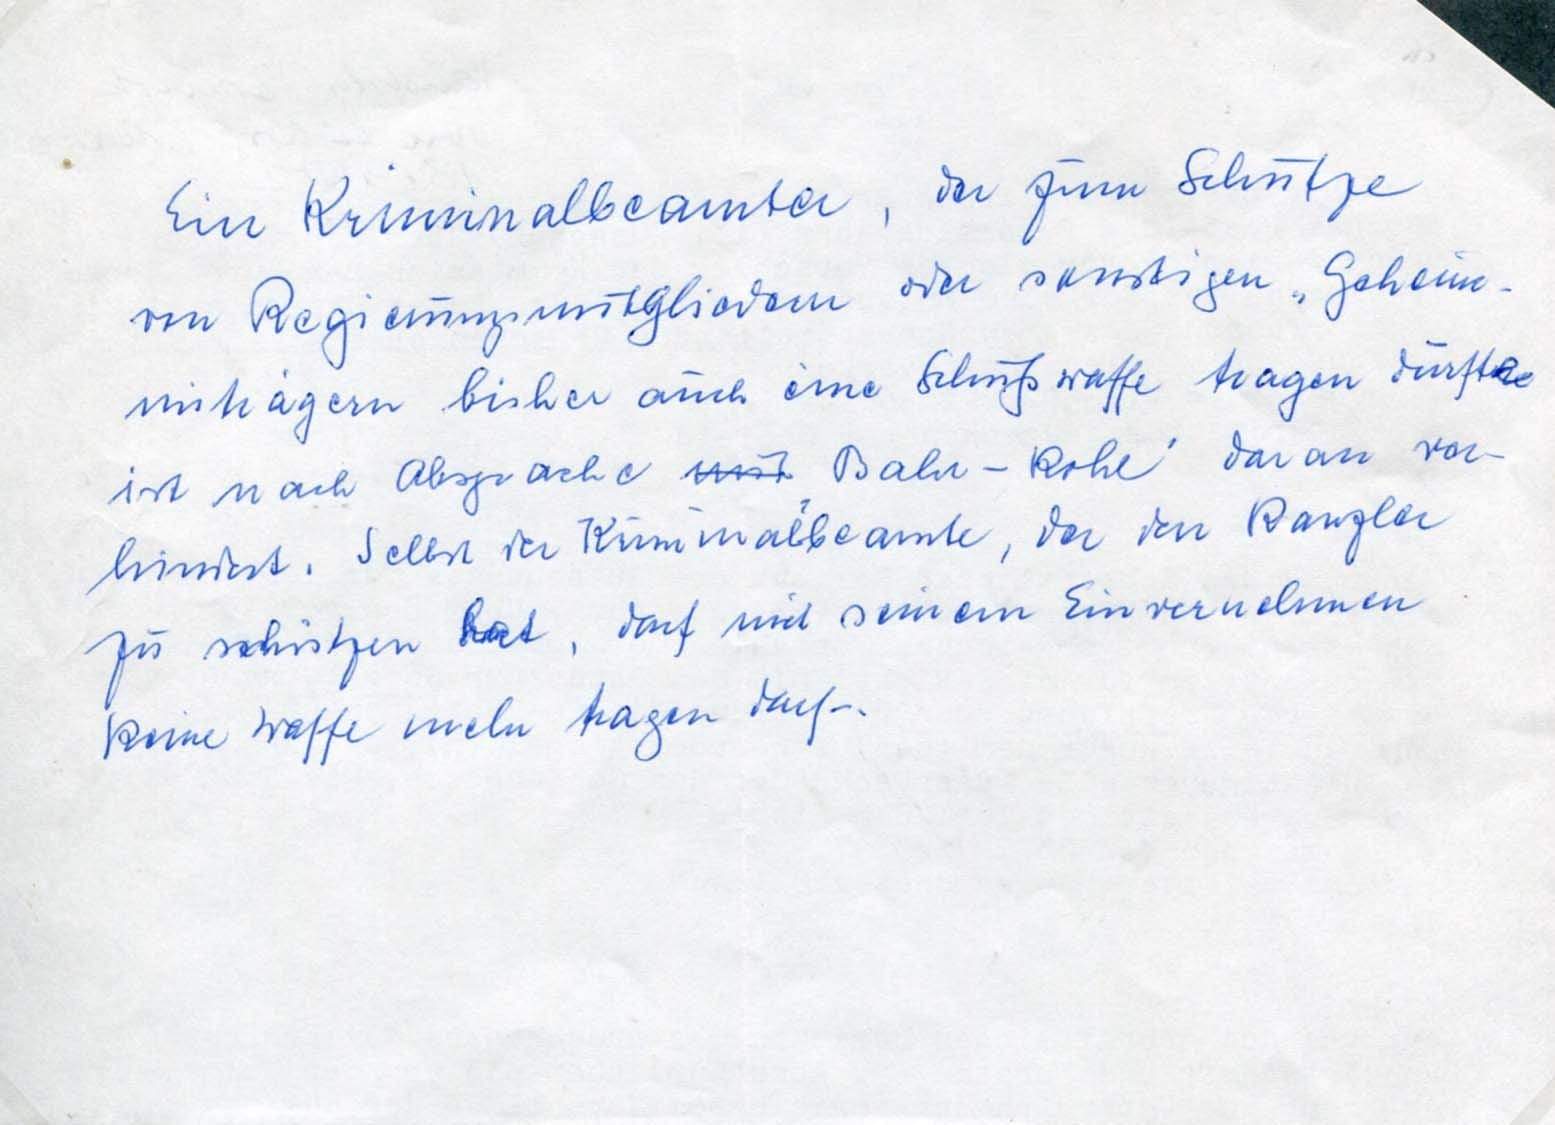 Ein Kriminalbeamter, der zum Schutze
von Regierungsmitgliedern oder sonstigen „Geheim-
nisträgern bisher auch eine Schußwaffe tragen durfte
ist nach Absprache mit „Bahr-Kohl' daran ver-
hindert. Selbst der Kriminalbeamte, der den Kanzler
zu schützen hat, darf mit seinem Einvernehmen
keine Waffe mehr tragen darf.